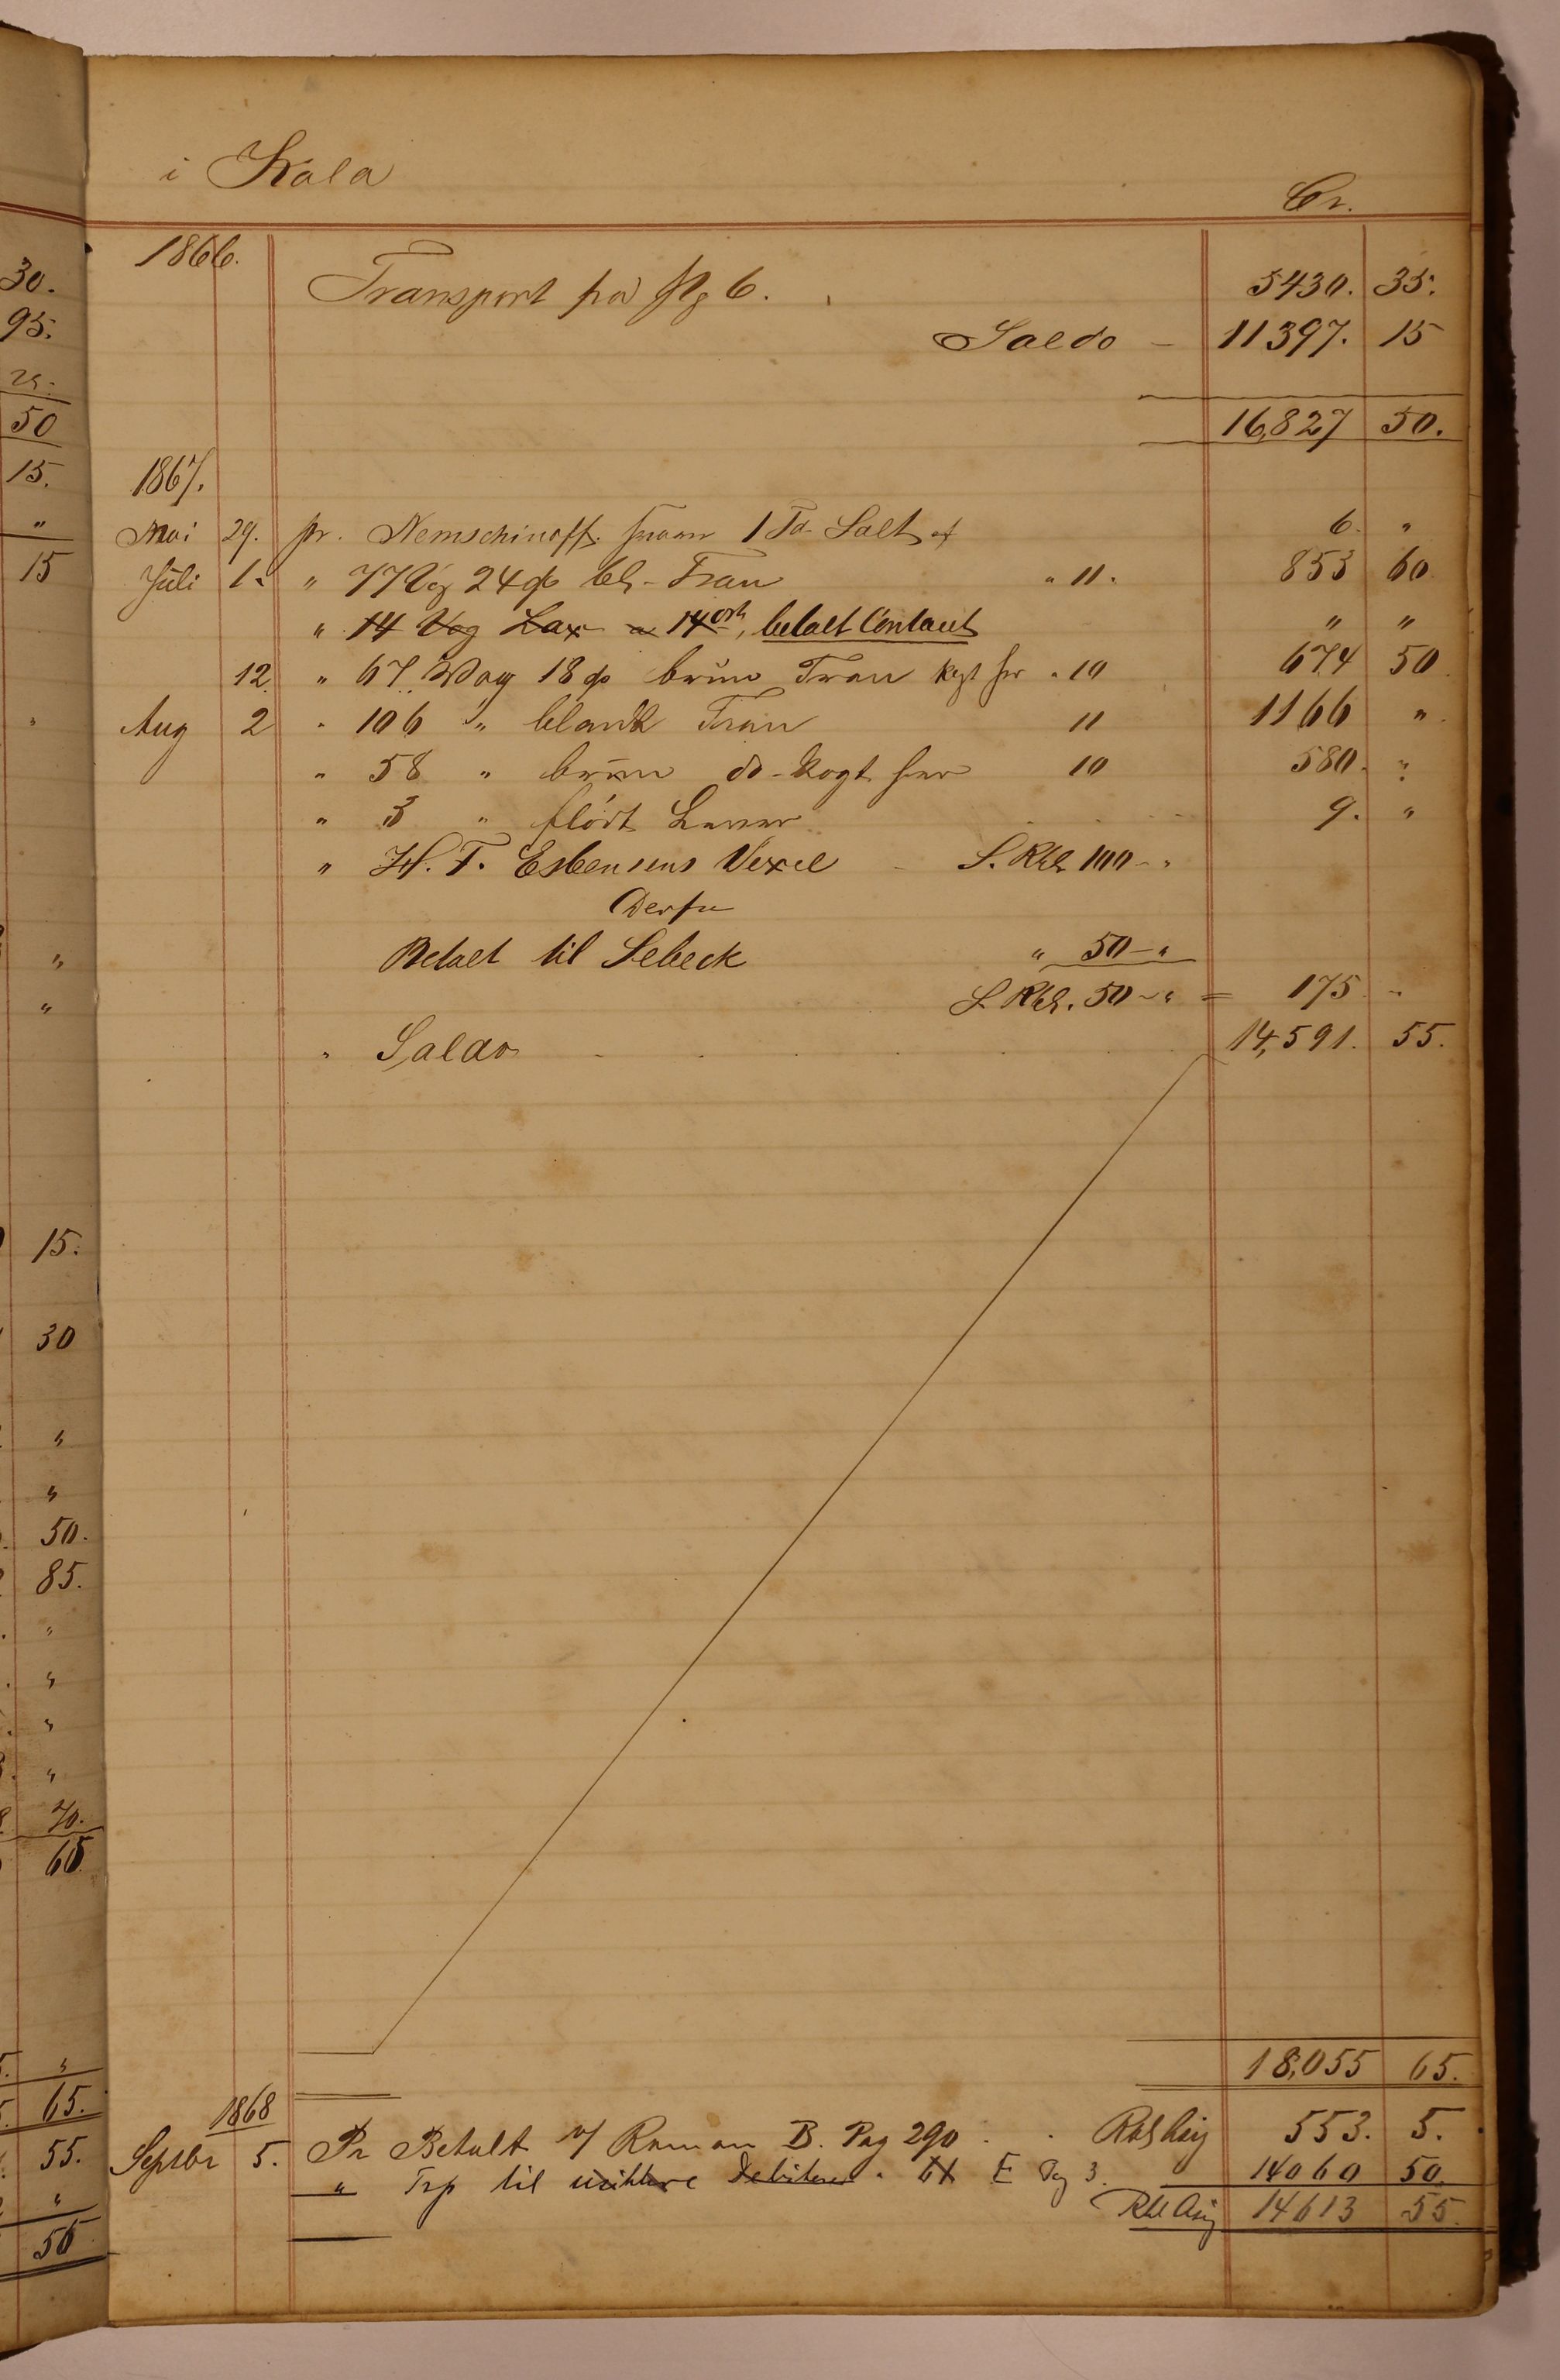 i Kola
Cr.
1866.
Transport på pg 6. 5430. 35.
Saldo - 11397. 15
16,827 50.
1867.
Mai 29. pr. Nemschinoff 1 Td. Salt 6. "
Juli 1. " 77 Vog 24 bl. Tran " 11. 853 60
" 14 Vog Lax a 14 ort, betalt Contant " "
12. " 67 Wog 18 brun Tran kogt " 10 674 50
Aug 2 " 106 " blank Tran 11 1166 "
" 58 " brun do kogt 10 580. "
" 3 " flödt Lever 9. "
" H. F. Esbensens Vexel - S. Rbl. 100 - "
Derfra
Betalt til Sebeck " 50 - "
S. Rbl. 50 - " = 175 "
" Saldo 14,591. 55.
18,055 65.
1868
Septbr 5. Pr Betalt Roman B. Pag 290 Rbl Asig 553. 5.
" Trp til E Pg 3. 14060 50.
Rbl Asig 14613 55.
30.
95.
50
15.
"
15
"
"
"
15.
30
"
"
50.
85.
"
"
"
"
70.
65
"
65.
55.
"